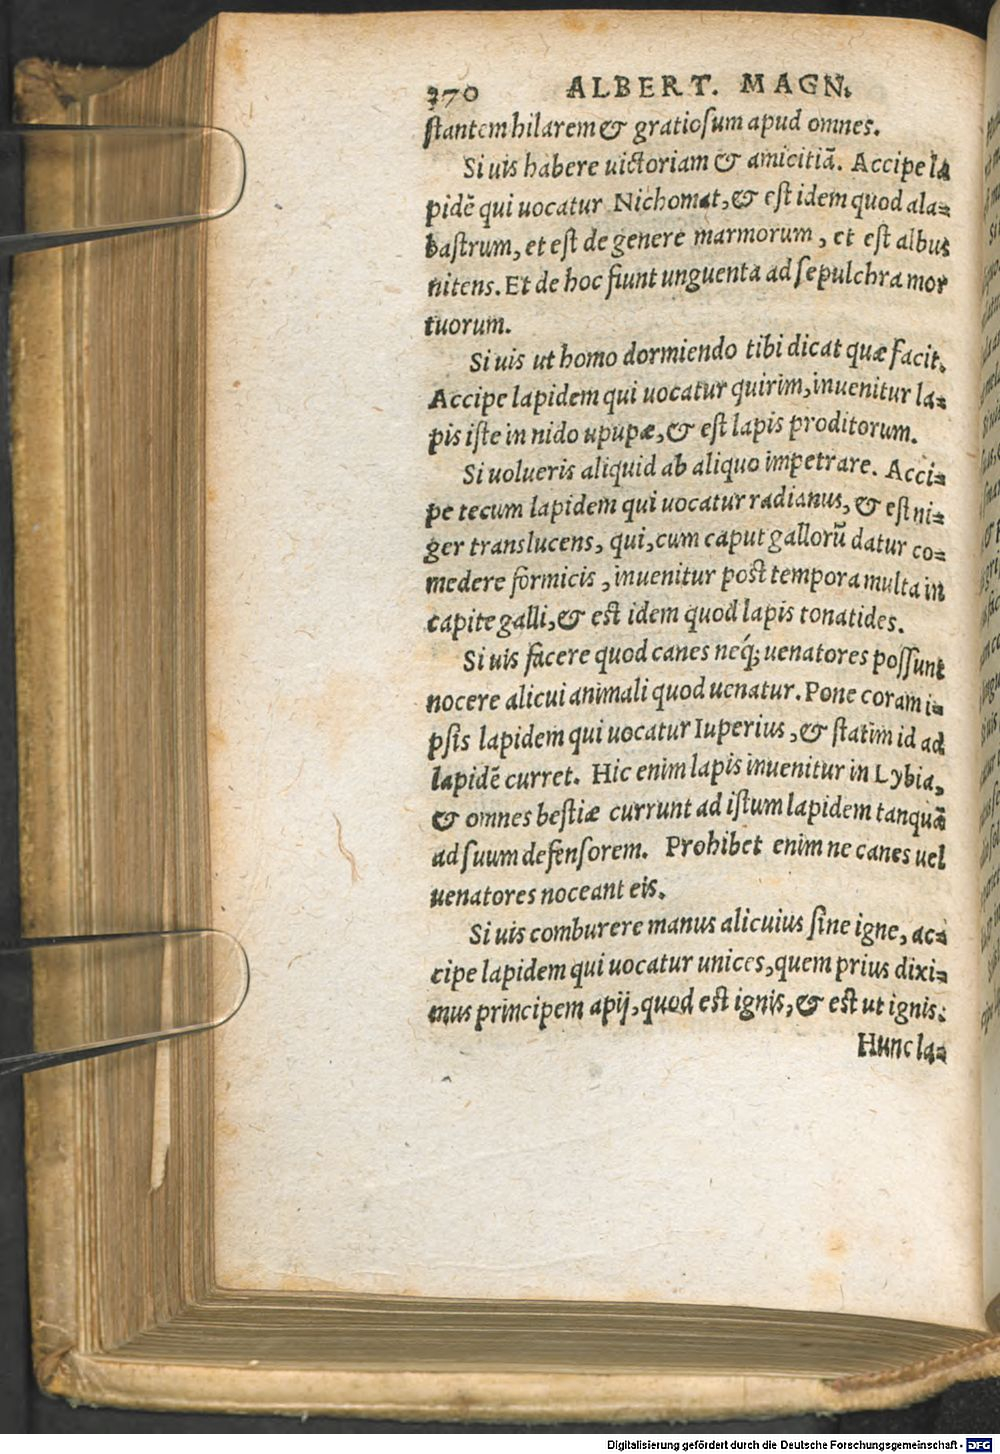 370 ALBERT. MAGN.
ſtantem hilarem & gratioſum apud omnes.
Si uis habere uictoriam & amicitiā. Accipe la
pidē qui uocatur Nichomat, & eſt idem quod ala-
baſtrum, et eſt de genere marmorum, et eſt albus
nitens. Et de hoc fiunt unguenta ad ſepulchra mor
tuorum.
Si uis ut homo dormiendo tibi dicat quæ facit.
Accipe lapidem qui uocatur quirim, inuenitur la-
pis iſte in nido upupæ, & eſt lapis proditorum.
Si uolueris aliquid ab aliquo impetrare. Acci-
pe tecum lapidem qui uocatur radianus, & eſt ni-
ger translucens, qui, cum caput gallorū datur co-
medere formicis, inuenitur poſt tempora multa in
capite galli, & eſt idem quod lapis tonatides.
Si uis facere quod canes neq́; uenatores poſſunt
nocere alicui animali quod uenatur. Pone coram i-
pſis lapidem qui uocatur Iuperius, & ſtatim id ad
lapidē curret. Hic enim lapis inuenitur in Lybia,
& omnes beſtiæ currunt ad iſtum lapidem tanquā
ad ſuum defenſorem. Prohibet enim ne canes uel
uenatores noceant eis.
Si uis comburere manus alicuius ſine igne, ac-
cipe lapidem qui uocatur unices, quem prius dixi-
mus principem apij, quod eſt ignis, & eſt ut ignis.
Hunc la-
Digitalisierung gefördert durch die Deutsche Forschungsgemeinschaft - DFG